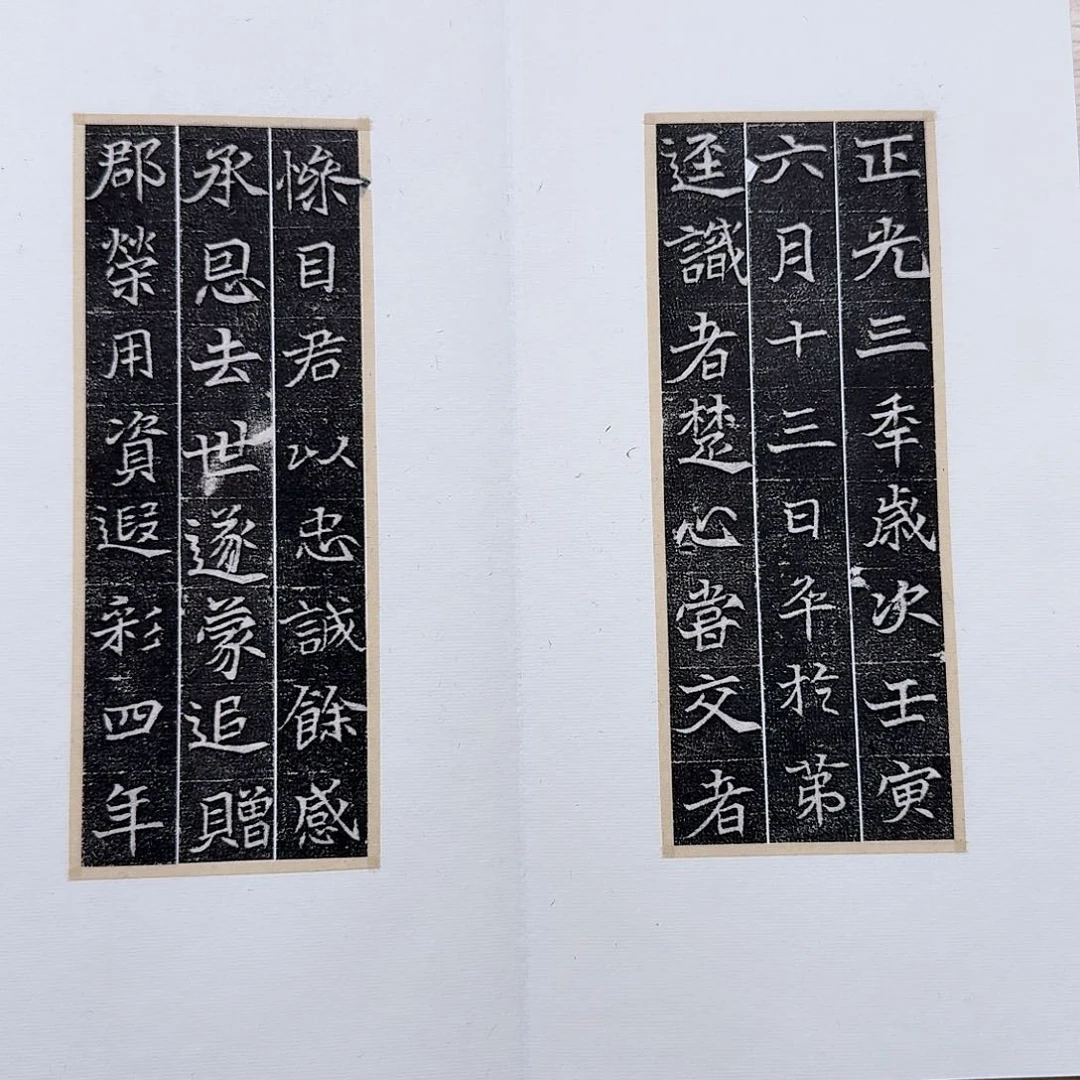 正光三秊歲次壬寅
六月十三日卒於第
逕識者楚心嘗交者
慘目君以忠誠餘感
承恩去世遂蒙追贈
郡榮用資遐彩四年